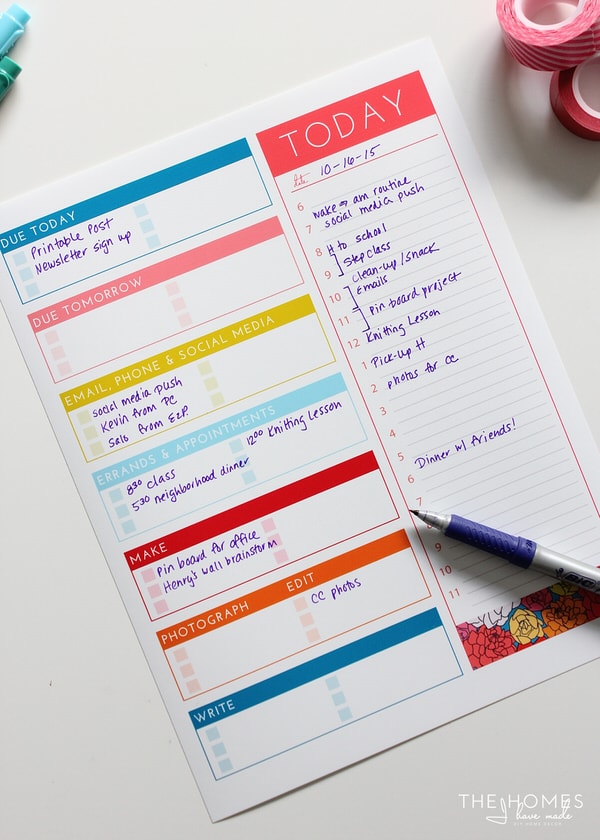 DUE TODAY
Printable Post
Newsletter sign up
DUE TOMORROW
EMAIL, PHONE & SOCIAL MEDIA
social media push
Kevin from PC
Salo from EZP.
ERRANDS & APPOINTMENTS
830 class
530 neighborhood dinner
1200 Knitting Lesson
MAKE
Pin board for office
Henry's wall brainstorm
PHOTOGRAPH EDIT
CC photos
WRITE
TODAY
date: 10-16-15
6 wake → am routine
7 social media push
8 H to school
Step class
9 clean-up/snack
10 Emails
11 Pin board project
12 Knitting Lesson
1 Pick-up H
2 photos for CC
3
4
5 Dinner w/ friends!
6
7
9
10
11
THE HOMES
I have made
DIY HOME DECOR